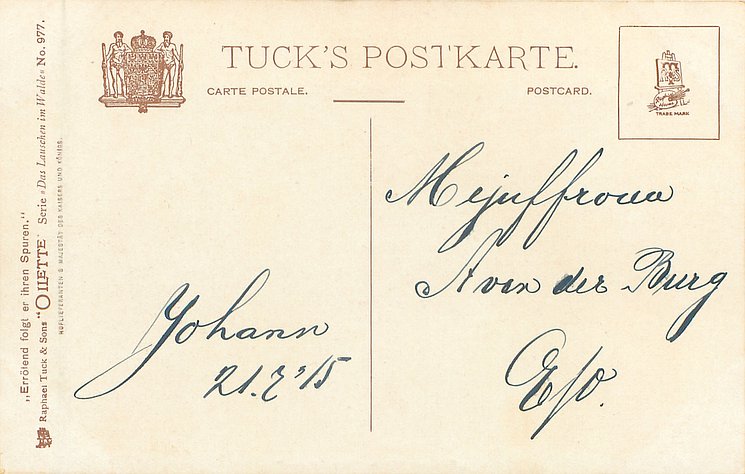 TUCK'S POSTKARTE.
CARTE POSTALE.
POSTCARD.
TRADE MARK
„Errötend folgt er ihren Spuren."
Raphael Tuck & Sons "OILETTE" Serie „Das Lauschen im Walde" No. 977.
HOFLIEFERANTEN S MAJESTÄT DES KAISERS UND KÖNIGS.
Johann
21.7'15
Mejuffrouw
A van der Burg